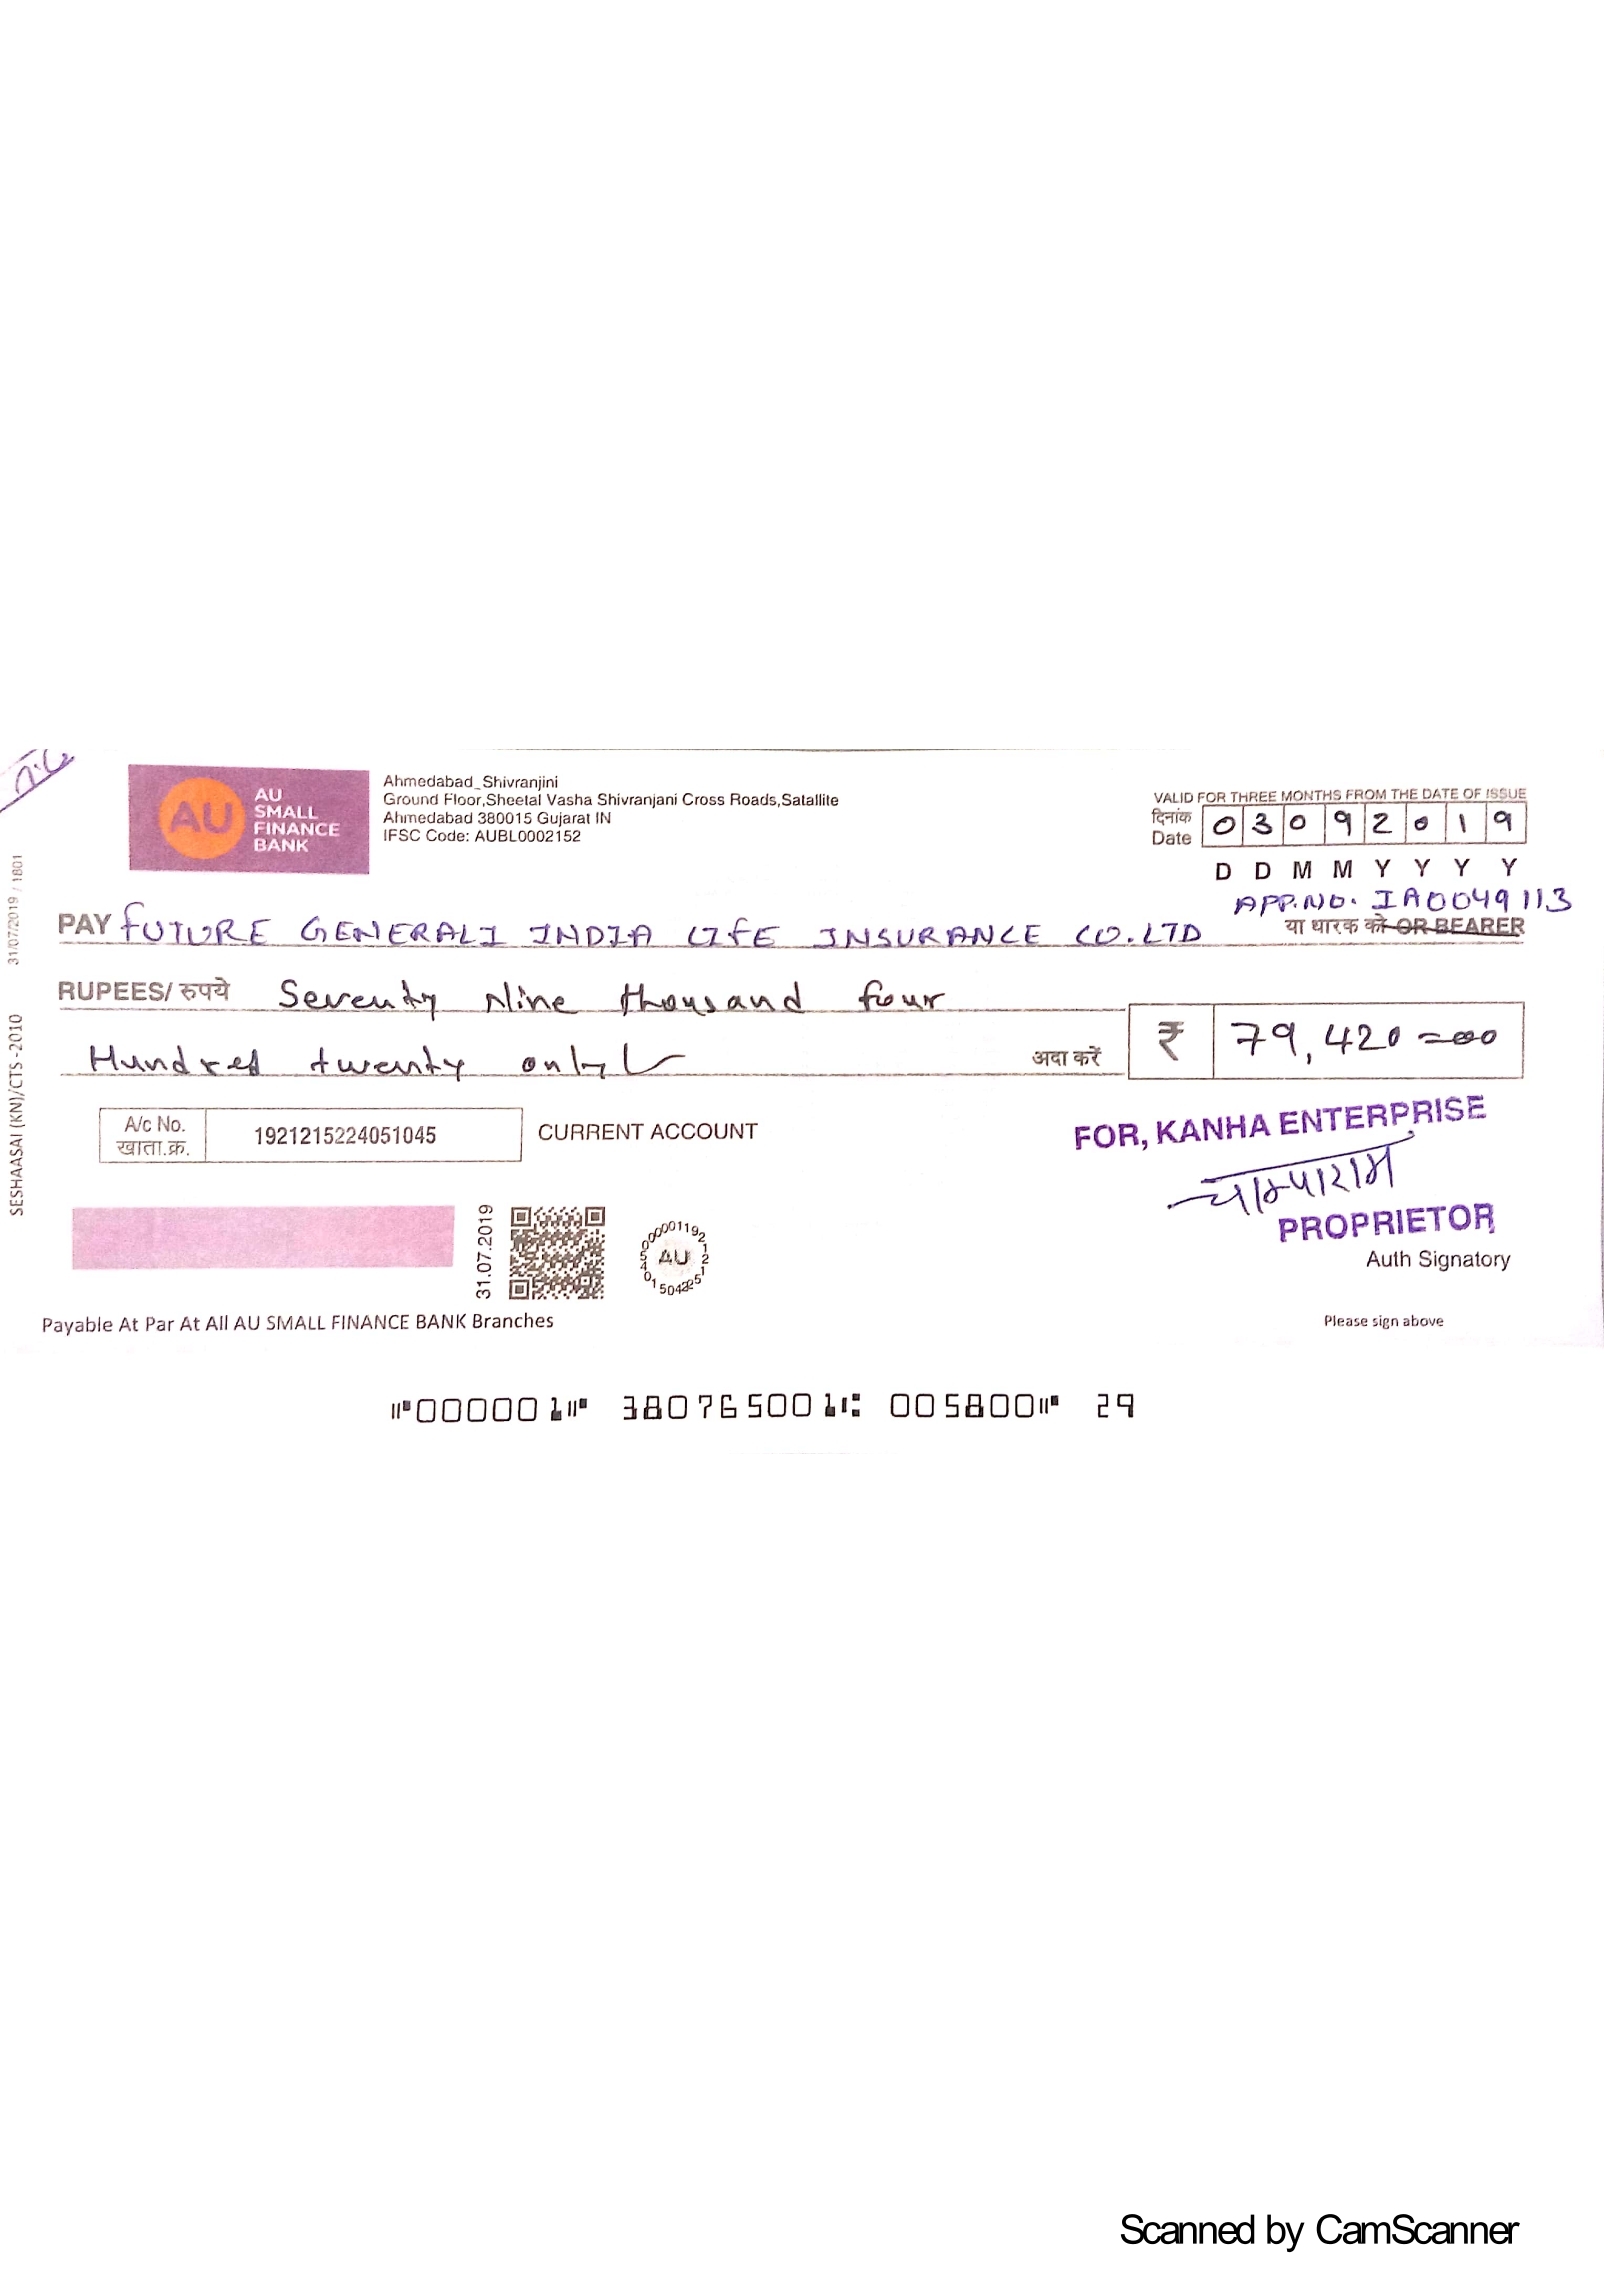 AU
AU
SMALL
FINANCE
BANK
Ahmedabad_Shivranjini
Ground Floor,Sheetal Vasha Shivranjani Cross Roads,Satallite
Ahmedabad 380015 Gujarat IN
IFSC Code: AUBL0002152
VALID FOR THREE MONTHS FROM THE DATE OF ISSUE
दिनांक
Date 03092019
D D M M Y Y Y Y
APP.NO. IA0049113
PAY FUTURE GENERALI INDIA LIFE INSURANCE CO.LTD या धारक को OR BEARER
RUPEES/ रुपये Seventy Nine thousand four
Hundred twenty only अदा करें ₹ 79,420=00
A/c No.
खाता.क्र. 1921215224051045 CURRENT ACCOUNT
FOR, KANHA ENTERPRISE
चाम्पाराम
PROPRIETOR
Auth Signatory
31.07.2019
AU
Payable At Par At All AU SMALL FINANCE BANK Branches
Please sign above
SESHAASAI (KN)/CTS -2010 31/07/2019 / 1801
⑈000001⑈ 380765001⑆ 005800⑈ 29
Scanned by CamScanner